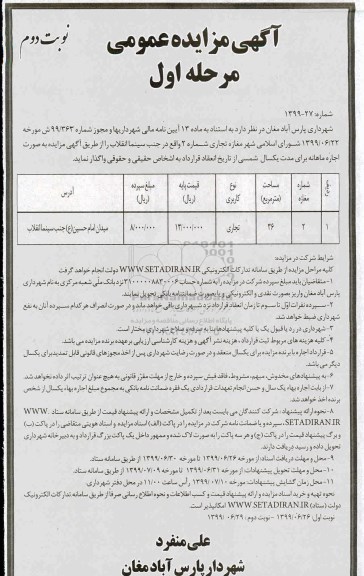 نوبت دوم
آگهی مزایده عمومی
مرحله اول
شماره: ۲۷-۱۳۹۹
شهرداری پارس آباد مغان در نظر دارد به استناد به ماده ۱۳ آیین نامه مالی شهرداریها و مجوز شماره ۹۹/۳۶۳ ش مورخه
۱۳۹۹/۰۶/۲۲ شورای اسلامی شهر مغازه تجاری شماره ۲ واقع در جنب سینما انقلاب را از طریق آگهی مزایده به صورت
اجاره ماهانه برای مدت یکسال شمسی از تاریخ انعقاد قرارداد به اشخاص حقیقی و حقوقی واگذار نماید.
ردیف شماره مغازه مساحت (مترمربع) نوع کاربری قیمت پایه (ریال) مبلغ سپرده (ریال) آدرس
۱ ۲ ۳۶ تجاری ۱۳/۰۰۰/۰۰۰ ۸/۰۰۰/۰۰۰ میدان امام حسین(ع) جنب سینما انقلاب
شرایط شرکت در مزایده:
کلیه مراحل مزایده از طریق سامانه تدارکات الکترونیکی WWW.SETADIRAN.IR دولت انجام خواهد گرفت
۱- متقاضیان باید مبلغ سپرده شرکت در مزایده را به شماره حساب نزد بانک ملی شعبه مرکزی به نام شهرداری
پارس آباد مغان واریز بصورت نقدی و الکترونیکی و یا بصورت ضمانتنامه بانکی تحویل نمایند.
۲- سپرده نفرات اول تا سوم تا زمان انعقاد قرارداد نزد شهرداری باقی خواهد ماند و در صورت انصراف هر کدام سپرده آنان به نفع
شهرداری ضبط خواهد شد.
۳- شهرداری در رد یا قبول یک یا کلیه پیشنهادها بنا به صرفه و صلاح شهرداری مختار است.
۴- کلیه هزینه های مربوط ثبت قرارداد، هزینه نشر آگهی و هزینه کارشناسی ارزیابی برعهده برنده مزایده می باشد.
۵- قرارداد اجاره با برنده مزایده برای یکسال منعقد و در صورت رضایت شهرداری پس از اخذ مجوزهای قانونی قابل تمدید برای یکسال
دیگر می باشد.
۶- به پیشنهادهای مخدوش، مبهم، مشروط، فاقد فیش سپرده و خارج از مهلت مقرر قانونی به هیچ عنوان ترتیب اثر داده نخواهد شد.
۷- از بابت اجاره بهاء یک سال و حسن انجام تعهدات قراردادی یک فقره ضمانت نامه بانکی به مجموع مبلغ اجاره بهاء یکسال از شخص
برنده اخذ خواهد شد.
۸- نحوه ارائه پیشنهاد: شرکت کنندگان می بایست بعد از تکمیل مشخصات و ارائه پیشنهاد قیمت از طریق سامانه ستاد WWW.
SETADIRAN.IR، سپرده و یا ضمانت نامه شرکت در مزایده را در پاکت (الف) اسناد مزایده و اسناد هویتی متقاضی را در پاکت (ب)
و برگ پیشنهاد قیمت را در پاکت (ج) و هر سه پاکت را به صورت لاک شده و ممهور داخل یک پاکت بزرگ قرارداد و به دبیرخانه شهرداری
تحویل داده و رسید دریافت دارند.
۹- محل و مهلت دریافت اسناد: از مورخه ۱۳۹۹/۰۶/۲۶ تا مورخه ۱۳۹۹/۰۶/۳۰ از طریق سامانه ستاد.
۱۰- محل و مهلت تحویل پیشنهادات: از مورخه ۱۳۹۹/۰۶/۳۱ تا مورخه ۱۳۹۹/۰۷/۰۹ از طریق سامانه ستاد.
۱۱- محل زمان گشایش پیشنهادات: مورخه ۱۳۹۹/۰۷/۱۰ رأس ساعت ۱۱/۰۰ در محل دفتر شهرداری.
نحوه تهیه و خرید اسناد مزایده و ارائه پیشنهاد قیمت و کسب اطلاعات و نحوه اطلاع رسانی صرفاً از طریق سامانه تدارکات الکترونیک
دولت (ستاد) WWW.SETADIRAN.IR امکانپذیر است.
نوبت اول: ۱۳۹۹/۰۶/۲۶ - نوبت دوم: ۱۳۹۹/۰۶/۲۹
علی منفرد
شهردار پارس آباد مغان